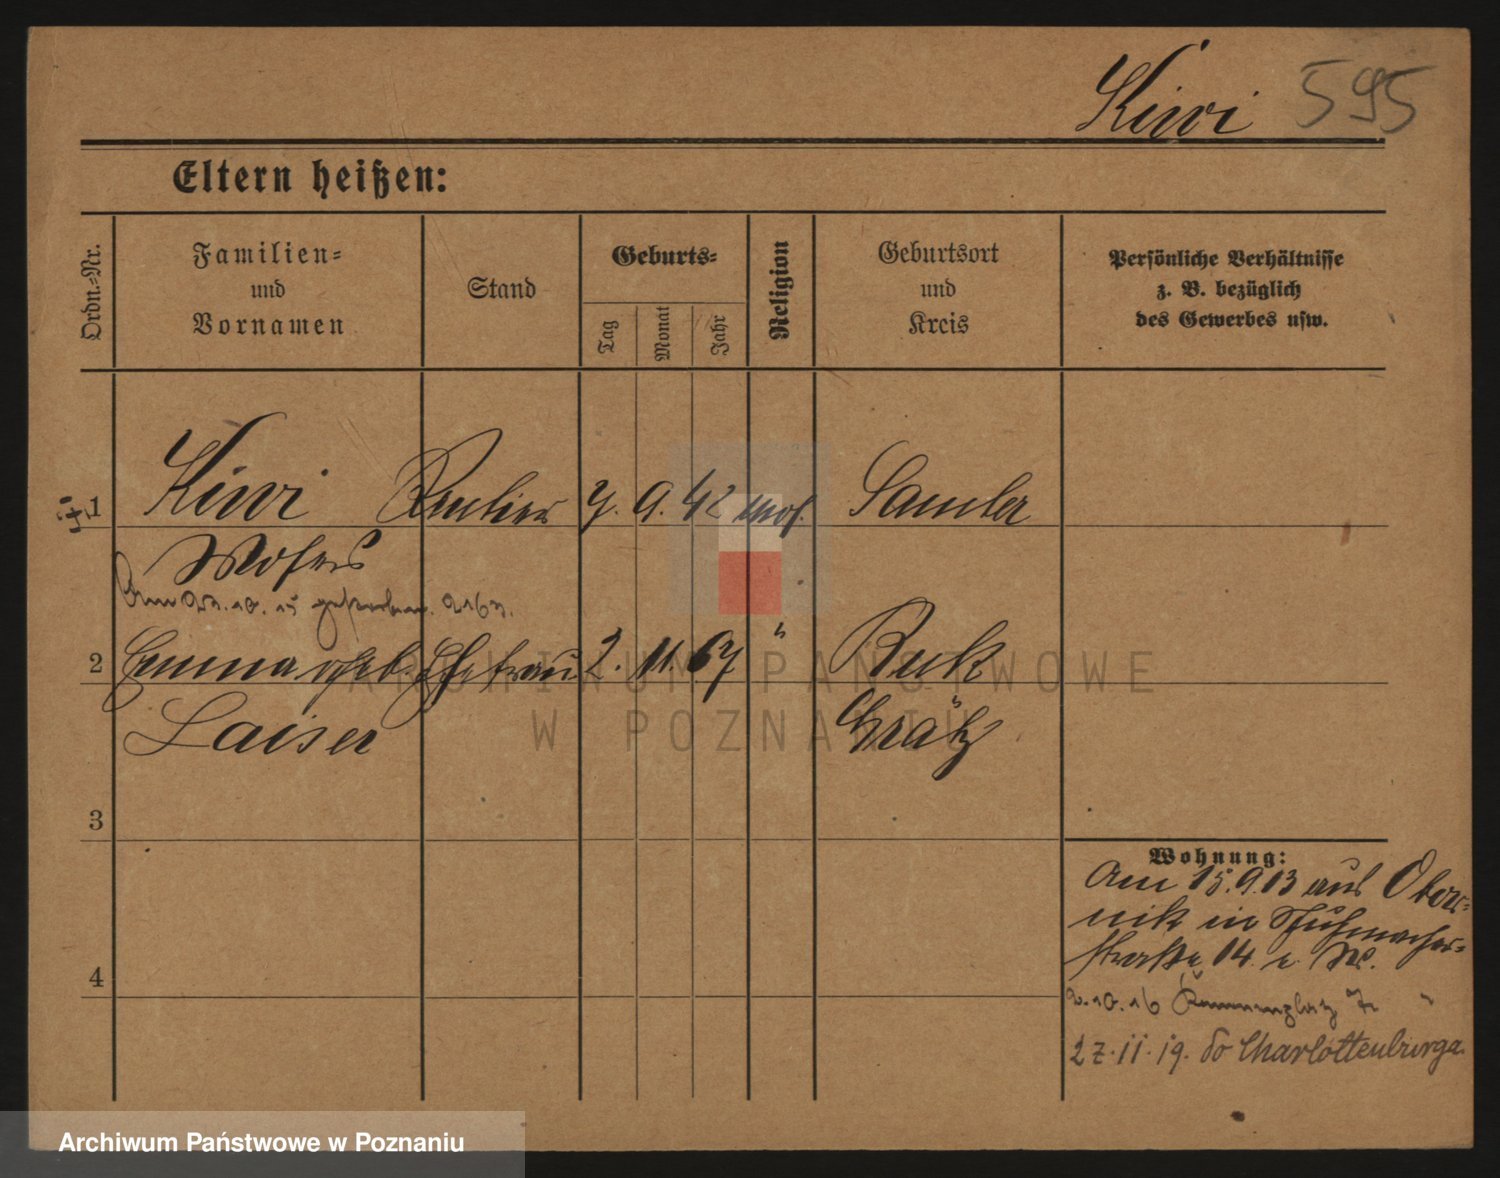 Kiwi 595
Eltern heißen:
Ordn.-Nr.
Familien-
und
Vornamen
Stand
Geburts-
Tag
Monat
Jahr
Religion
Geburtsort
und
Kreis
Persönliche Verhältnisse
z. B. bezüglich
des Gewerbes usw.
1 Kiwi Rentier 7. 9. 42 mos. Samter
Moses
Am 23.10.15 gestorben.
2 Emma geb. Ehefrau 2. 11. 67 " Buk
Laiser Grätz
3
4
Wohnung:
Am 15.9.13 aus Obor-
nik in Schuhmacher-
straße 14
2.10.16
27.11.19. do Charlottenburga.
ARCHIWUM PAŃSTWOWE
W POZNANIU
Archiwum Państwowe w Poznaniu